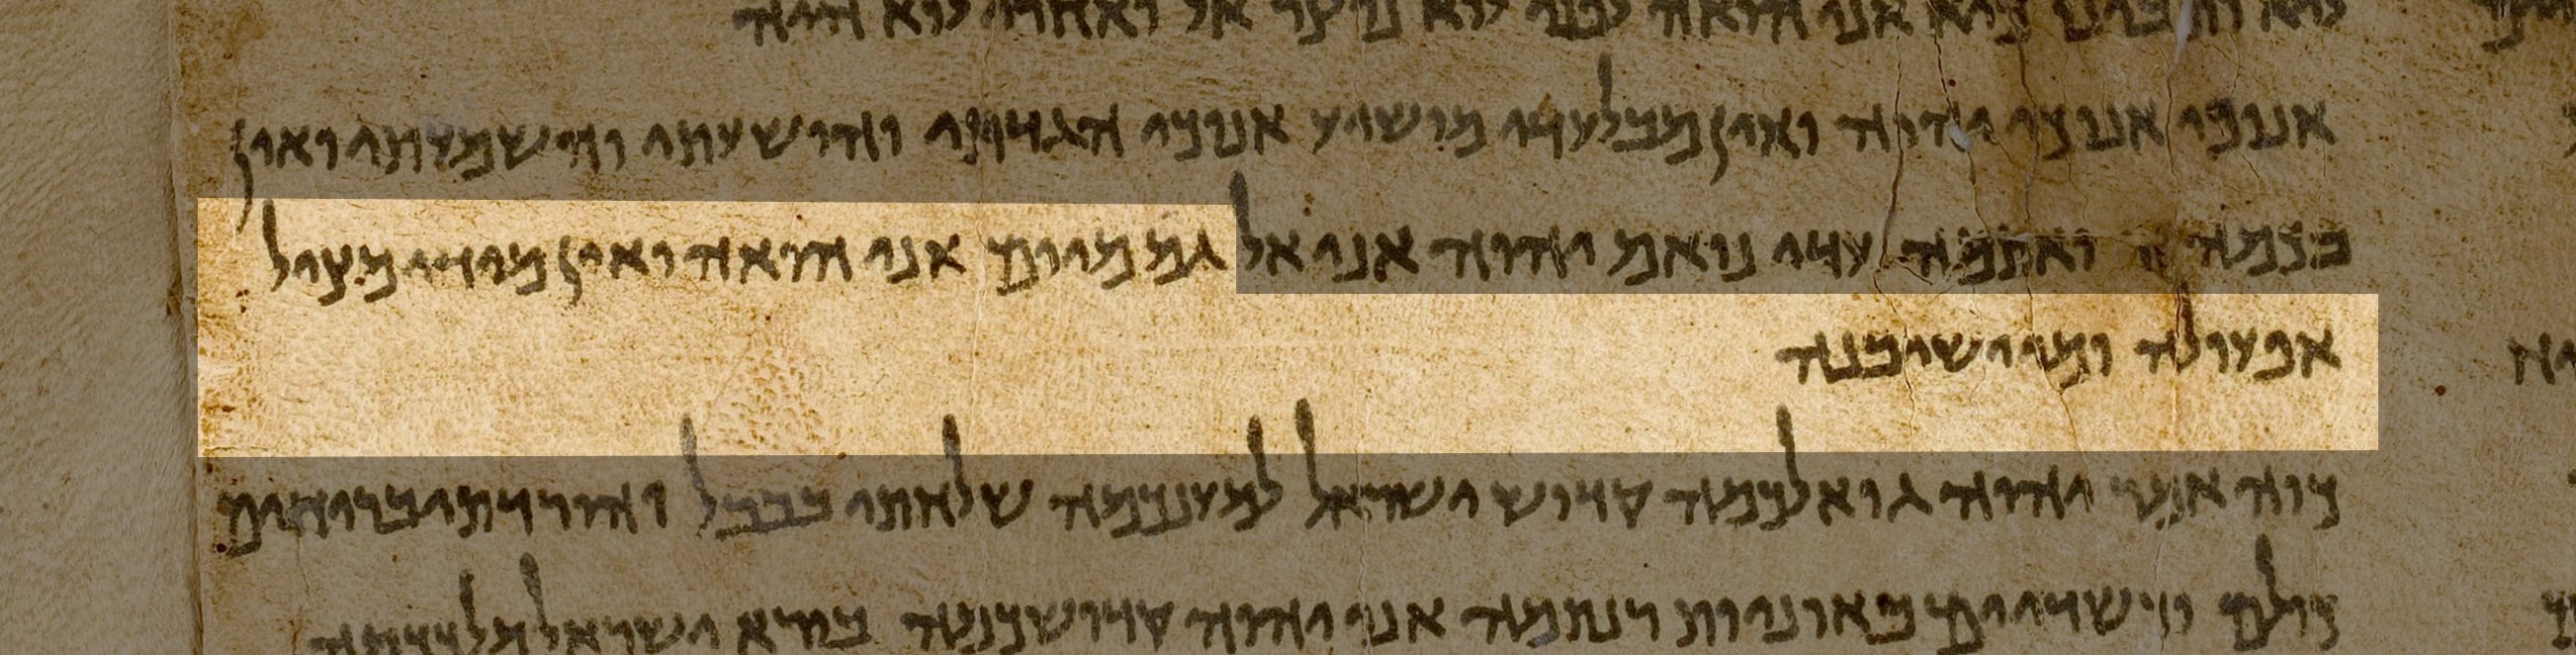 ליא ותבינו כיא אני הואה לפני לוא נוצר אל ואחרי לוא היה
אנוכי אנוכי יהוה ואין מבלעדי מושיע אנוכי הגדתי והושעתי והשמעתי ואין
בכמה ואתמה עדי נואם יהוה אני אל גם מיום אני הואה ואין מידי מציל
אפעולה ומי ישיבנה
כוה אמר יהוה גואלכמה קדוש ישראל למענכמה שלחתי בבבל והורדתי בריחים
כולם וכשדיים באוניות רנתמה אני יהוה קדושכמה בורא ישראל מלככמה